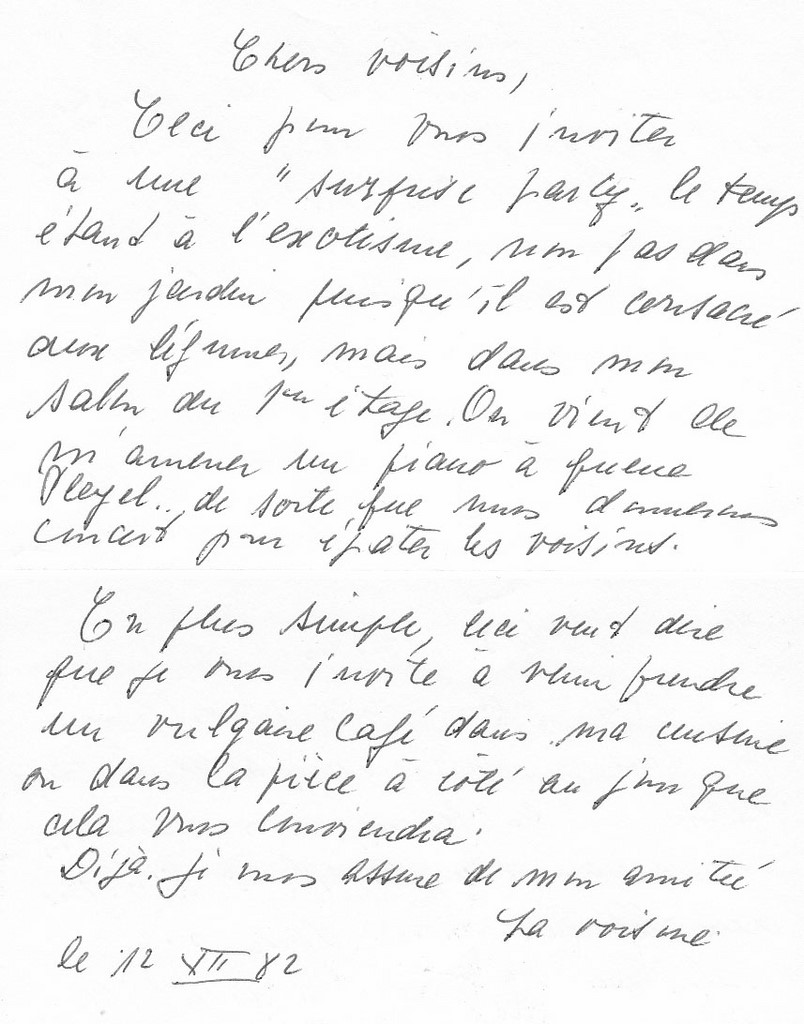 Chers voisins,
Ceci pour vous inviter
à une "surprise party" le temps
étant à l'exotisme, non pas dans
mon jardin puisqu'il est consacré
aux légumes, mais dans mon
salon du 1er étage. On vient de
m'amener un piano à queue
Pleyel.. de sorte que nous donnerons
concert pour épater les voisins.
En plus simple, ceci veut dire
que je vous invite à venir prendre
un vulgaire café dans ma cuisine
ou dans la pièce à côté au jour que
cela vous conviendra.
Déjà je vous assure de mon amitié
La voisine
le 12 XII 82